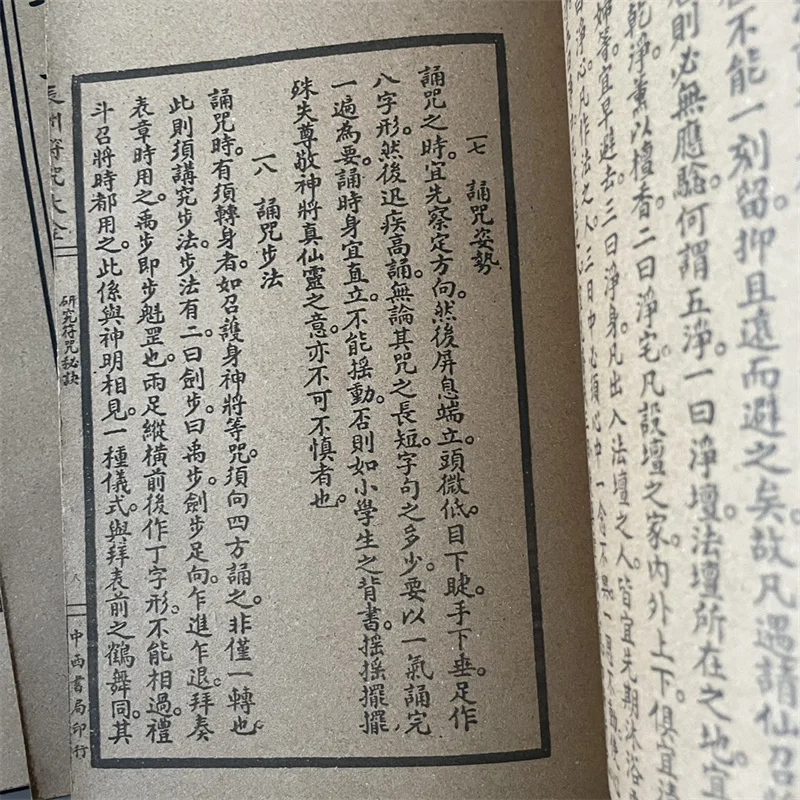 不能一刻留抑且遠而避之矣。故凡遇請仙召
則必無應驗。何謂五淨。一曰淨壇。法壇所在之地。宜
乾淨。薰以檀香。二曰淨宅。凡設壇之家。內外上下。俱宜
婦等。宜早避去。三曰淨身。凡出入法壇之人。皆宜先期沐浴
曰淨心。凡作法之人。三日中必須心中一念不
一七 誦咒姿勢
誦咒之時。宜先察定方向。然後屏息端立。頭微低。目下睫。手下垂。足作
八字形。然後迅疾高誦。無論其咒之長短。字句之多少。要以一氣誦完
一遍為要。誦時身宜直立。不能搖動。否則如小學生之背書。搖搖擺擺
殊失尊敬神將真仙靈之意。亦不可不慎者也。
一八 誦咒步法
誦咒時。有須轉身者。如召護身神將等咒。須向四方誦之。非僅一轉也。
此則須講究步法。步法有二。曰劍步。曰禹步。劍步足向。乍進乍退。拜奏
表章時用之。禹步即步魁罡也。兩足縱橫前後作丁字形。不能相過。禮
斗召將時都用之。此係與神明相見。一種儀式。與拜表前之鶴舞同。其
辰州符咒大全
研究符咒秘訣
八
中西書局印行